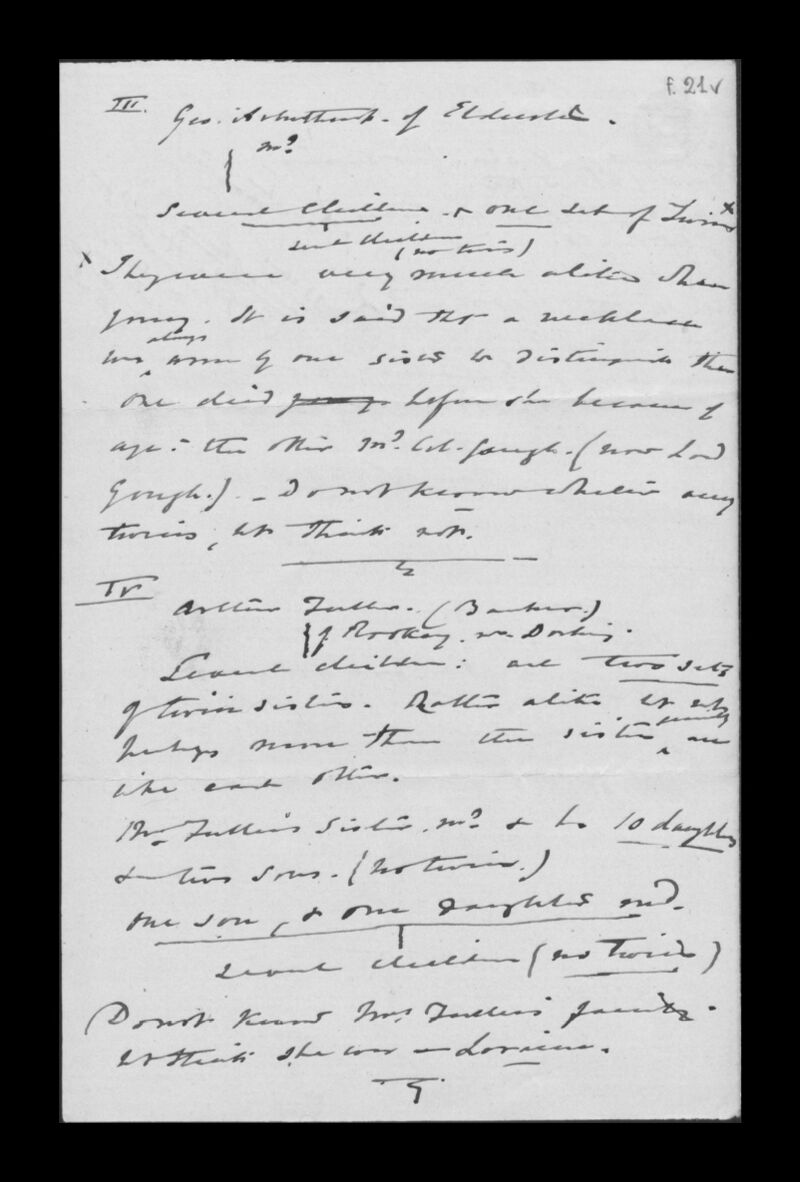 f. 21v
III. Geo. Arbuthnot. of Elderslie.
md
Several Children & one set of Twins x
sevl children
(no twins)
x They were very much alike when
young. It is said tht a necklace
was always worn by one sister to distinguish them
one died young before she became of
age: the other md. Col. Gough. (now Lord
Gough.) – Do not know whether any
twins, bt think not.
IV
Arthur Fuller. (Banker.)
of Rookery. nr Dorking.
Several children: are two sets
of twin sisters. Rather alike bt not
perhaps more than the sisters generally are
like each other.
Mr Fuller's Sister, md & hs 10 daughters
& two sons. (No twins.)
one son, & one daughter md.
Several children (no Twins)
(Do not know Mrs Fuller's family.
bt think she was a